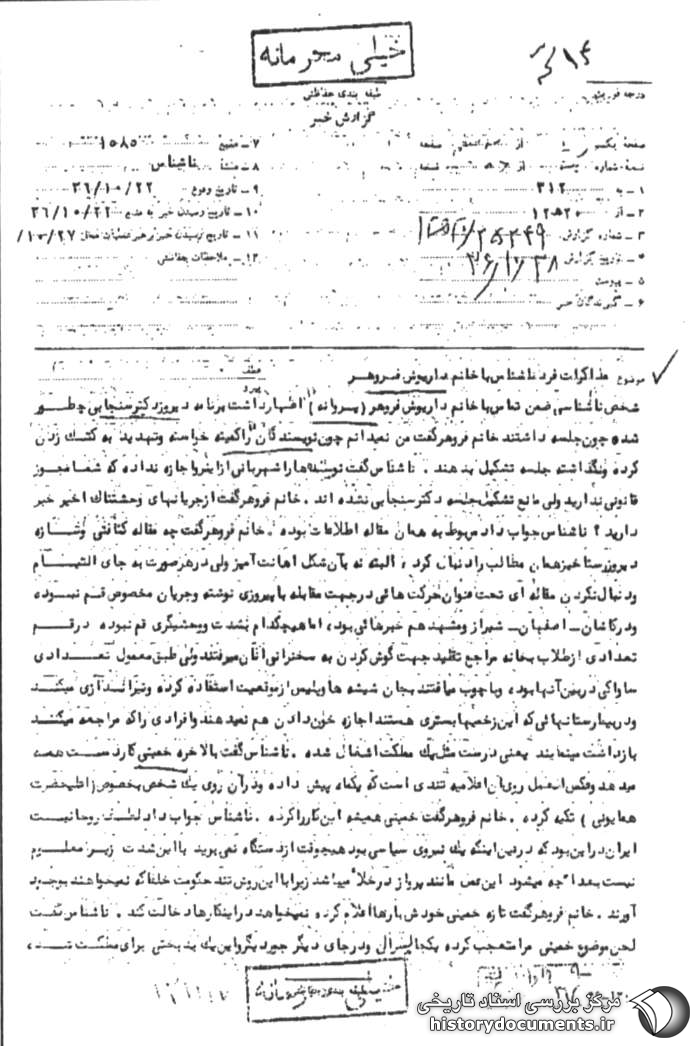 خیلی محرمانه
۱۴
درجه فوریت
طبقه بندی حفاظتی
گزارش خبر
صفحه یکم از صفحه
نسخه شماره از نسخه
۱ - به ۳۱۲
۲ - از ۱۲ ﻫ ۲۰
۳ - شماره گزارش
۴ - تاریخ گزارش
۵ - پیوست
۶ - گیرندگان خبر
۷ - منبع ۱۰۸۵
۸ - منشأ ناشناس
۹ - تاریخ وقوع ۳۶/۱۰/۲۲
۱۰ - تاریخ رسیدن خبر به منبع ۳۶/۱۰/۲۲
۱۱ - تاریخ رسیدن خبر به رهبر عملیات محل ۱۰/۲۷/
۱۲ - ملاحظات حفاظتی
موضوع مذاکرات فرد ناشناس با خانم داریوش فروهر
شخص ناشناسی ضمن تماس با خانم داریوش فروهر (پروانه) اظهار داشت برنامه دیروز دکتر سنجابی چطور
شده چون جلسه داشتند خانم فروهر گفت من نمیدانم چون نویسندگان را کمیته خواسته وتهدید به کتک زدن
کرده ونگذاشته جلسه تشکیل بدهند . ناشناس گفت نویسنده ها را شهربانی از اینرو اجازه نداده که شما مجوز
قانونی ندارید ولی مانع تشکیل جلسه دکتر سنجابی نشده اند . خانم فروهر گفت از جریانهای وحشتناک اخیر خبر
دارید ؟ ناشناس جواب داد مربوط به همان مقاله اطلاعات بوده . خانم فروهر گفت چه مقاله کثافتی وتازه
دیروز رستاخیز همان مطالب را دنبال کرد ، البته نه بآن شکل اهانت آمیز ولی در هر صورت به جای التیام
ودنبال نکردن مقاله ای تحت عنوان حرکت هائی در جهت مقابله با پیروزی نوشته وجریان مخصوص قم نبوده
ودر کاشان - اصفهان - شیراز ومشهد هم خبرهائی بود، اما هیچکدام بشدت ووحشیگری قم نبوده . در قم
تعدادی از طلاب بخانه مراجع تقلید جهت گوش کردن به سخنرانی آنان میرفتند ولی طبق معمول تعدادی
ساواکی در بین آنها بوده ، وبا چوب میافتند بجان شیشه ها وپلیس از موقعیت استفاده کرده وتیراندازی میکند
ودر بیمارستانهائی که این زخمیها بستری هستند اجازه خون دادن هم نمیدهند وافرادی را که مراجعه میکنند
بازداشت مینمایند یعنی درست مثل یک مملکت اشغال شده . ناشناس گفت بالاخره خمینی کار دست همه
میدهد وعکس العمل روی آن اعلامیه تندی است که یکماه پیش داده ودر آن روی یک شخص بخصوص (اعلیحضرت
همایونی ) تکیه کرده . خانم فروهر گفت خمینی همیشه این کار را کرده . ناشناس جواب داد لطف روحانیت
ایران در این بود که در عین اینکه یک نیروی سیاسی بود هیچوقت از دستگاه نمی برید با این شدت زیرا معلوم
نیست بعدا چه میشود این عمل مانند پرواز در خلاء میباشد زیرا با این روش تند حکومت خلفا که نمیخواهند بوجود
آورند . خانم فروهر گفت تازه خمینی خودش بارها اعلام کرده نمیخواهد در اینکارها دخالت کند . ناشناس گفت
لحن موضوع خمینی مرا متعجب کرده یکجا لیبرال ودر جای دیگر جور دیگر واین یک بدبختی برای مملکت شده ،
طبقه بندی حفاظتی
خیلی محرمانه
مرکز بررسی اسناد تاریخی
historydocuments.ir